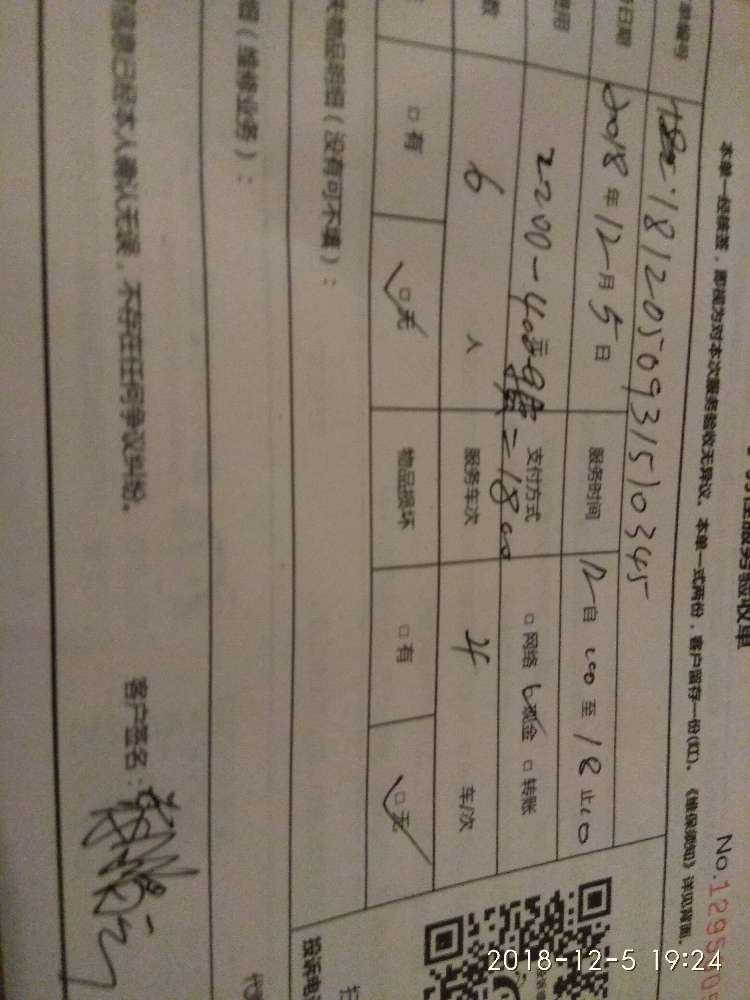 服务验收单
No.1295
本单一经填签，即视为对本次服务验收无异议。本单一式两份，客户留存一份(红)。《维保须知》详见背面。
单编号 181205093151034５
日期 2018年12月5日 服务时间 12自00至18止00
使用 2200-400 =1800 支付方式 □网络 □现金 □转账
数 6 人 服务车次 4 车/次
□有 □无 物品损坏 □有 □无
物品明细（没有可不填）：
细（维修业务）：
信息已经本人确认无误，不存在任何争议纠纷。
客户签名：
投诉电
2018-12-5 19:24